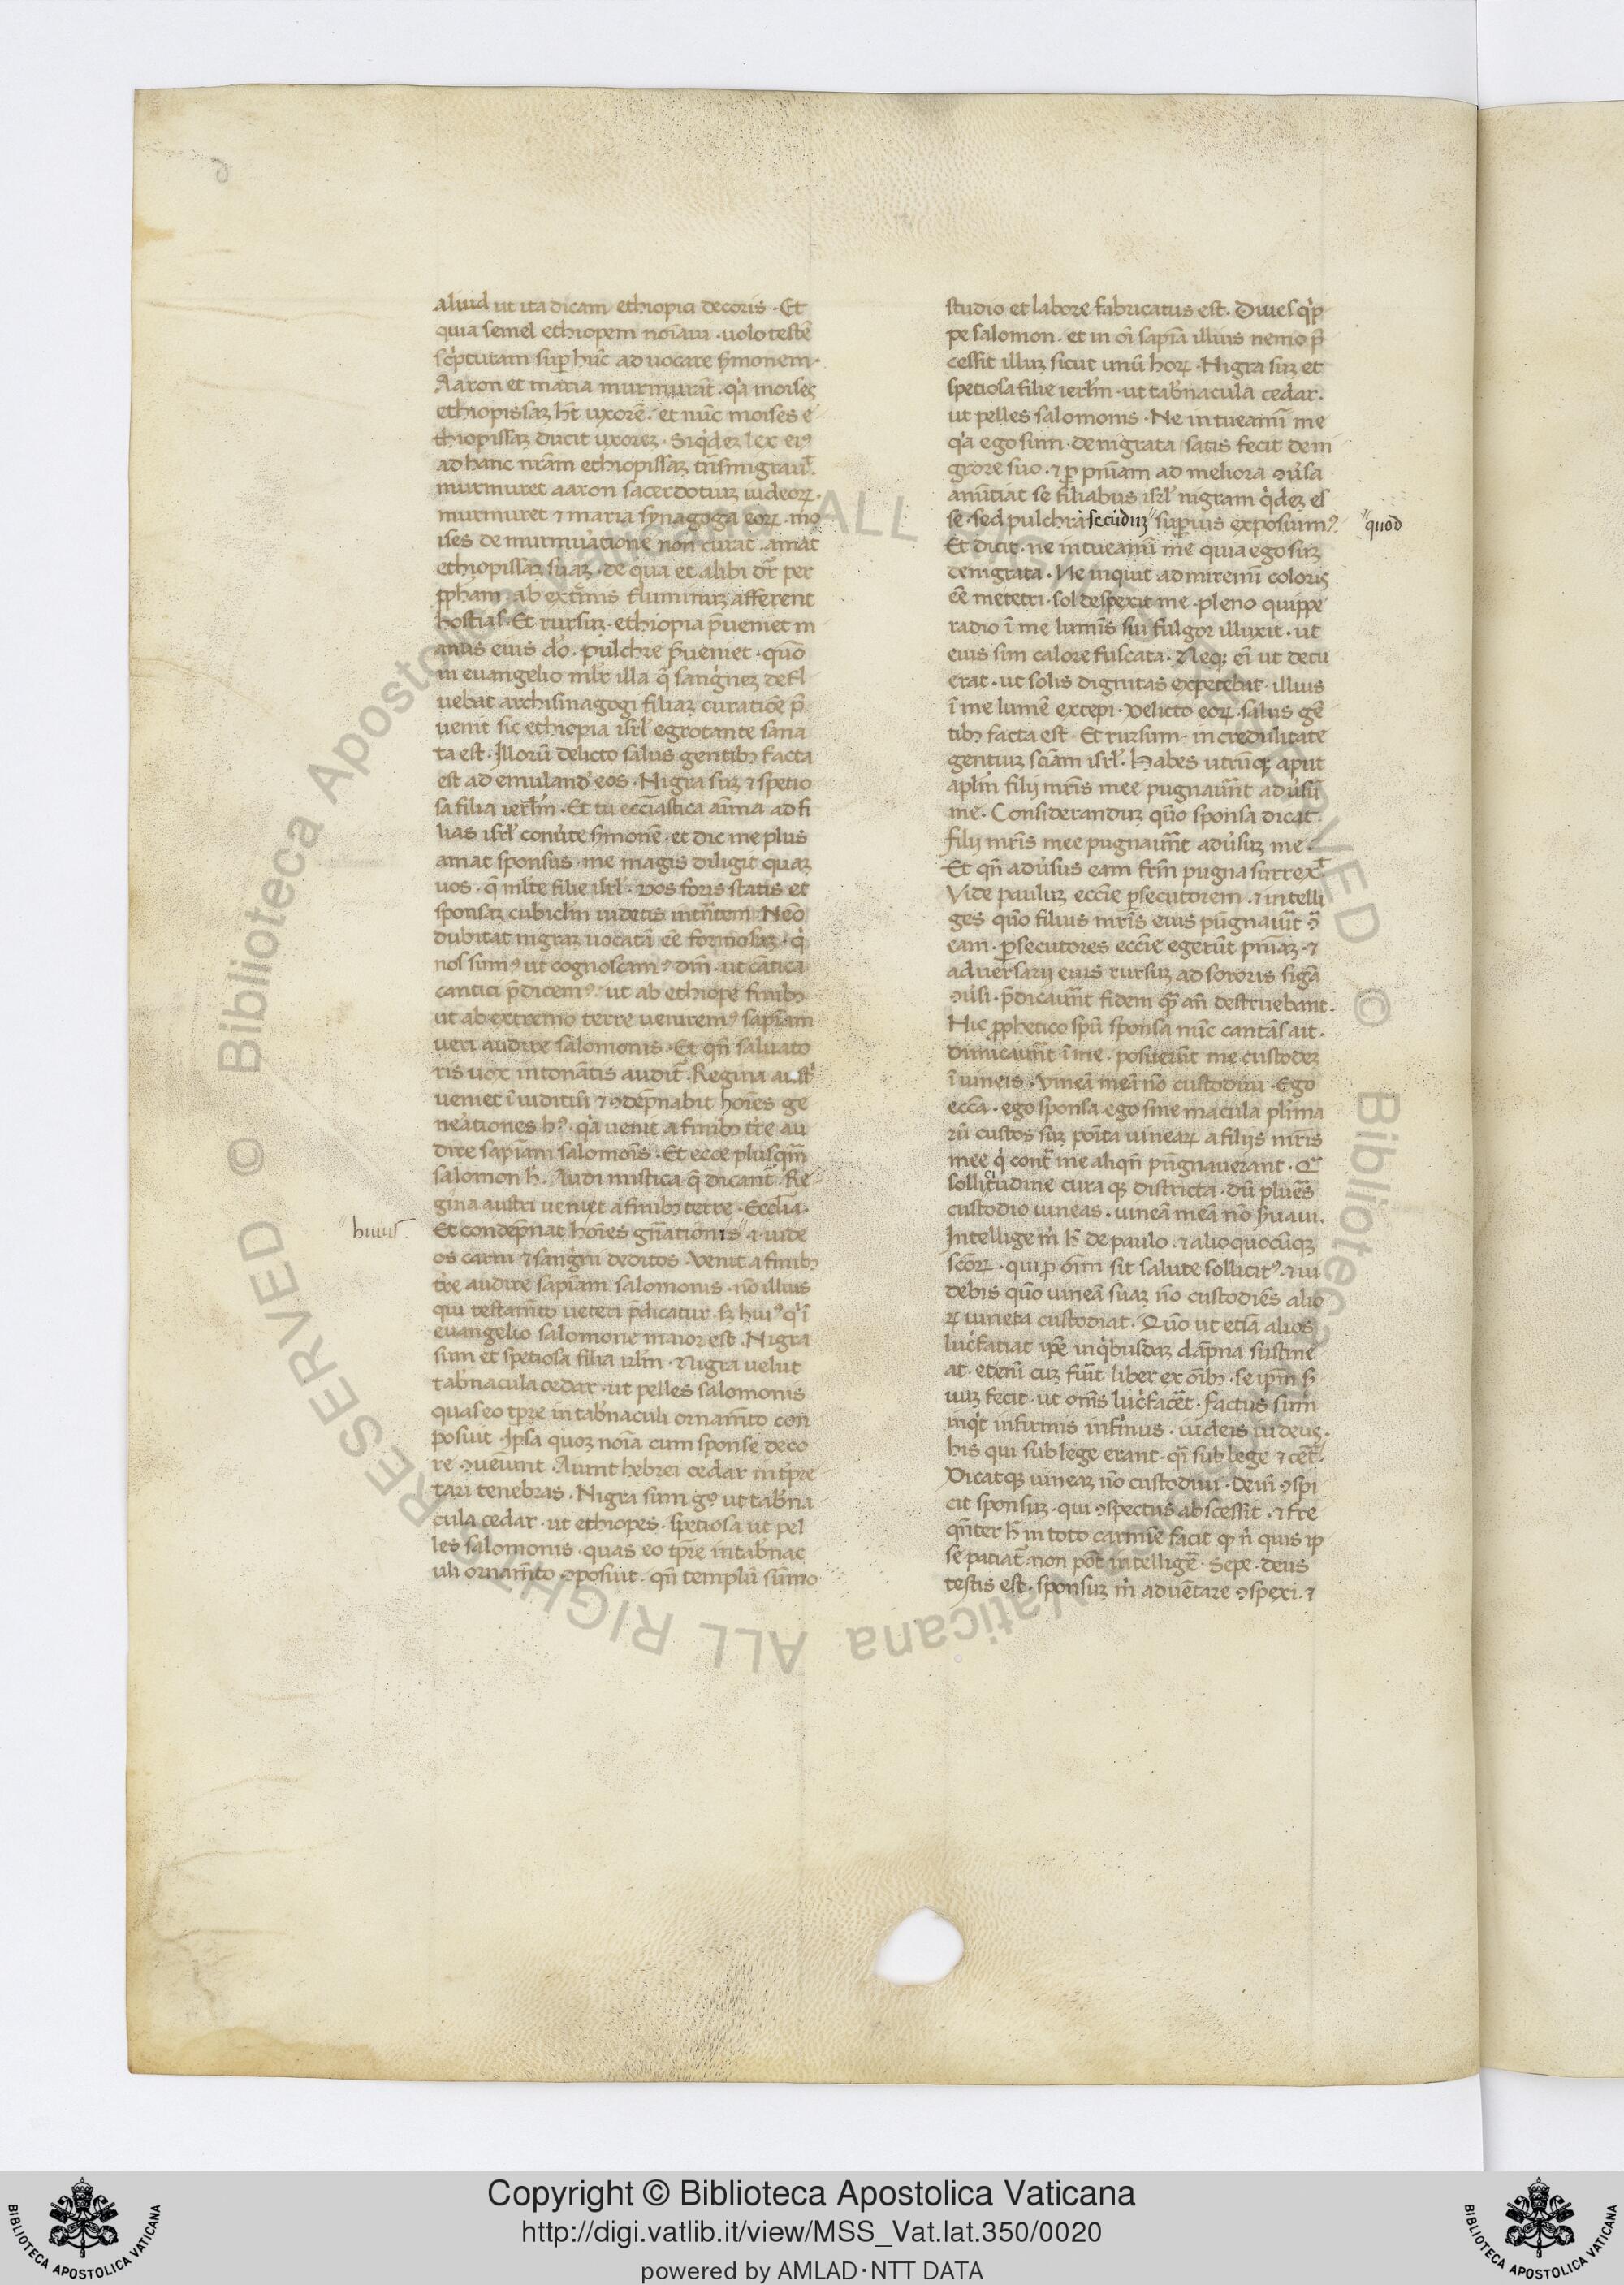 aliud ut ita dicam ethiopici decoris · Et
quia semel ethiopem noīaui · uolo testē
sc̓pturam suꝑ hūc ad uocare ẜmonem ·
Aaron et maria murmurāt · q̓a moises
ethiopissaꝫ h̄t uxorē · et nūc moises e
thiopissaꝫ ducit uxoreꝫ · Siq̓deꝫ lex eiꝰ
ad hanc nr̄am ethiopissaꝫ tn̄smigrauꝰ
murmuret aaron sacerdotiuꝫ iudeoꝝ ·
murmuret ⁊ maria synagoga eoꝝ · mo
ises de murmuratione non curat · amat
ethiopissaꝫ suaꝫ · de qua et alibi dr̄ per
ꝓpham · ab extremis fluminuꝫ afferent
hostias · Et rursuꝫ · ethiopia p̄ueniet m
anus eius d̓o · pulchre p̄ueniet · quō
in euangelio mlr̄ illa q̄ sang̓neꝫ defl
uebat archisinagogi filiaꝫ curatiōe p̄
uenit sic ethiopia isrl̓ egrotante sana
ta est · Illorū delicto salus gentibꝫ facta
est ad emuland̓ eos · Nigra suꝫ ⁊ spetio
sa filia ierl̄m · Et tu eccl̄iastica aīma ad fi
lias isrl̓ conu̓te ẜmonē · et dic me plus
amat sponsus · me magis diligit quaꝫ
uos · q̄ ml̄te filie isrl̓ · vos foris statis et
sponsaꝫ cubicl̄m uidetis int̄ntem · Neō
dubitat nigraꝫ uocatā eē formosaꝫ · q̓
nos sumꝰ ut cognoscamꝰ dm̄ · ut cātica
cantici p̄dicemꝰ · ut ab ethiope finibꝫ
ut ab extremo terre ueniremꝰ sapīam
ueri audire salomonis · Et qn̄ saluato
ris uox intonātis audit̄ · Regina aust̓
ueniet ī iuditiū ⁊ ꝯdēpnabit hoīes ge
nerationes hꝰ · q̓a uenit a finibꝫ tr̄e au
dire sapīam salomoīs · Et ecce plusqm̄
salomon h̓ · Audi mistica q̄ dicant̄ · Re
gina austri ueniet a finibꝫ terre · Eccl̄ia ·
huius
Et condepnat hoīes gn̄ationis · ⁊ · uide
os carni ⁊ sang̓ni deditos · Venit a finibꝫ
tr̄e audire sapīam salomonis · nō illius
qui testam̄to ueteri p̄dicatur · sꝫ huiꝰ q̓ ī
euangelio salomone maior est · Nigra
sum et spetiosa filia irl̄m · Nigra uelut
tab̓nacula cedar · ut pelles salomonis
quas eo tp̄re in tab̓naculi ornam̄to con
posuit · Ipsa quoꝫ noīa cum sponse deco
re ꝯueniunt · Aiunt hebrei cedar int̓pre
tari tenebras · Nigra sum gͦ ut tab̓na
cula cedar · ut ethiopes · spetiosa ut pel
les salomonis · quas eo tp̄re in tab̓nac
uli ornam̄to ꝯposuit · qn̄ templū sūmo
studio et labore fabricatus est · Diues q̓p
pe salomon · et in oī sapīa illius nemo p̄
cessit illuꝫ sicut unū hoꝝ · Nigra suꝫ et
spetiosa filie ierl̄m · ut tab̓nacula cedar ·
ut pelles salomonis · Ne intueamī me
q̓a ego sum denigrata satis fecit de ni
grore suo · ⁊ ꝑ pn̄iam ad meliora ꝯu̓sa
anūtiat se filiabus isrl̓ nigram q̓deꝫ es
se · sed pulchrā secūduꝫ superius exposuimꝰ
quod
Et dicit · ne intueamī me quia ego suꝫ
denigrata · Ne inquit admiremī coloris
ēē me tetri · sol despexit me · pleno quippe
radio ī me lumīs sui fulgor illuxit · ut
eius sim calore fuscata · Neqꝫ eī ut decu
erat · ut solis dignitas expetebat · illius
ī me lumē excepi · Delicto eoꝝ · salus gē
tibꝫ facta est · Et rursum · incredulitate
gentiuꝫ sciam isrl̓ · Habes utrūqꝫ aput
apl̄m filij mr̄is mee pugnauer̄t adu̓sū
me · Consideranduꝫ quō sponsa dicat
filij mr̄is mee pugnauer̄t adu̓suꝫ me ·
Et qn̄ adu̓sus eam fr̄m pugna surrex̄
Vide pauluꝫ eccl̄ie ꝑsecutorem · ⁊ intelli
ges quō filius mr̄is eius pugnauit ꝯ̄
eam · ꝑsecutores eccl̄ie egerūt pn̄iaꝫ · ⁊
aduersarij eius rursuꝫ ad sororis signa
ꝯu̓si · p̄dicauer̄t fidem quā an̄ destruebant ·
Hic ꝓphetico spū sponsa nūc cantās ait ·
dimicauer̄t ī me · posuerūt me custodeꝫ
ī uineis · vineā meā nō custodiui · Ego
eccl̄ia · ego sponsa ego sine macula plīma
rū custos suꝫ poīta uineaꝝ a filijs mr̄is
mee q̓ cont̄ me aliqn̄ pugnauerant · Q̄
sollicitudine cura qꝫ districta · dū plures
custodio uineas · uineā meā nō ẜuaui ·
Intellige m̓ h̓ de paulo · ⁊ alio quocūqꝫ
scōꝝ · qui ꝓ oīm sit salute sollicitꝰ · ⁊ ui
debis quō uineā suaꝫ nō custodiēs alio
ꝝ uineta custodiat · Quō ut etiā alios
luc̓fatiat ip̄e in q̓busdaꝫ dāpna sustine
at · etenī cuꝫ fuit liber ex oībꝫ · se ip̄m ẜ
uuꝫ fecit · ut om̄s luc̓facēt · factus sum
inq̓t infirmis infirmus · iudeis iudeus ·
his qui sub lege erant · q̄ sub lege ⁊ cet̄
Dicatqꝫ uineaꝫ nō custodiui · Dein̄ ꝯspi
cit sponsuꝫ · qui ꝯspectus abscessit · ⁊ fre
qn̄ter h̓ in toto carmīe facit qꝫ nī quis ip
se patiat̄ non pōt intelligē̄ · Sepe · deus
testis est · sponsuꝫ m̓ aduētare ꝯspexi · ⁊
Copyright © Biblioteca Apostolica Vaticana
http://digi.vatlib.it/view/MSS_Vat.lat.350/0020
powered by AMLAD·NTT DATA